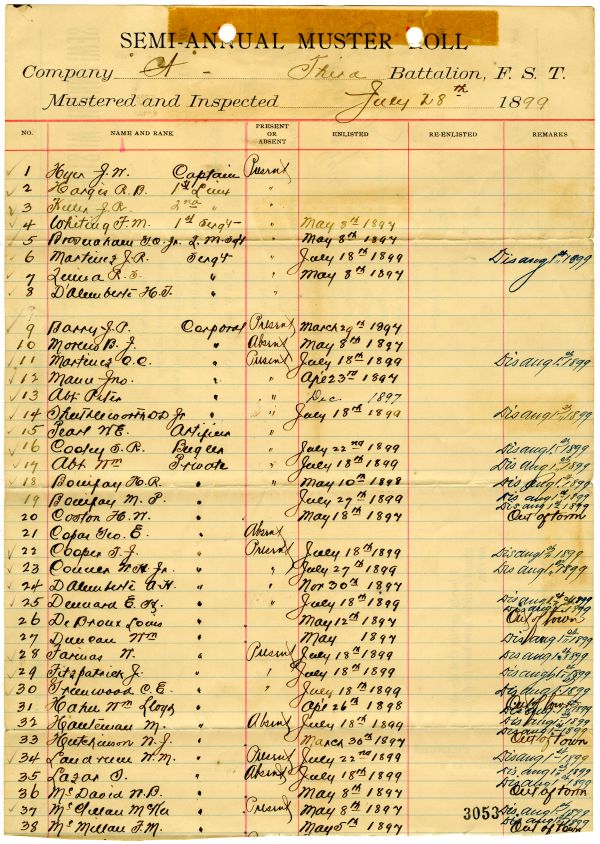 SEMI-ANNUAL MUSTER ROLL
Company "A" - Third Battalion, F. S. T.
Mustered and Inspected July 28th 1899
NO. NAME AND RANK PRESENT OR ABSENT ENLISTED RE-ENLISTED REMARKS
1 Hyer J. W. Captain Present
2 Hargis R. B. 1st Lieut "
3 J. R. 2nd " "
4 Whiting F. M. 1st Sergt " May 8th 1897
5 Brosnaham G. O. Jr. Q. M. Sgt " May 8th 1897
6 Martinez J. R. Sergt " July 18th 1899 Dis aug 1st 1899
7 " " May 8th 1897
8 D'Alemberte H. T. "
9 Barry J. P. Corporal Present March 29th 1897
10 Moreno B. J. " Absent May 8th 1897
11 Martinez C. C. " Present July 18th 1899 Dis aug 1st 1899
12 Mann Jno. " " Apl 23rd 1897
13 Abt Peter " " Dec. 1897
14 Shuttleworth D. D. Jr " " July 18th 1899 Dis aug 1st 1899
15 Pearl W. E. Artificer "
16 Cooley T. R. Bugler " July 22nd 1899 Dis aug 1st 1899
17 Abt Wm Private " July 18th 1899 Dis aug 1st 1899
18 Bonifay H. R. " May 10th 1898 Dis aug 1st 1899
19 Bonifay M. P. " July 27th 1899 Dis aug 1st 1899
20 Coston H. W. " May 18th 1897 Dis aug 1st 1899 Out of town
21 Geo. E. " Absent
22 Cooper T. J. " Present July 18th 1899 Dis aug 1st 1899
23 Conner W. H. Jr. " " July 27th 1899 Dis aug 1st 1899
24 D'Alemberte A. H. " " Nov 30th 1897
25 Dennard E. " " July 18th 1899 Dis aug 1st 1899
26 De Broux Louis " May 12th 1897 Out of town
27 Duncan Wm " May 1897 Dis aug 1st 1899
28 Farinas N. " Present July 18th 1899 Dis aug 1st 1899
29 Fitzpatrick J. " " July 18th 1899 Dis aug 1st 1899
30 Greenwood C. E. " " July 18th 1899 Dis aug 1st 1899
31 Hahn Wm Lloyd " Apl 26th 1898 Out of town
32 Hauteman M. " Absent July 18th 1899 Dis aug 1st 1899
33 Hutchinson N. J. " March 30th 1897 Out of town
34 Landrum W. M. " Present July 22nd 1899 Dis aug 1st 1899
35 Lazar O. " Absent July 18th 1899 Dis aug 1st 1899
36 McDavid N. B. " May 8th 1897 Out of town
37 McMillan McKee " Present May 8th 1897 Dis aug 1st 1899
38 McMillan F. M. " May 5th 1897 Out of town
3053